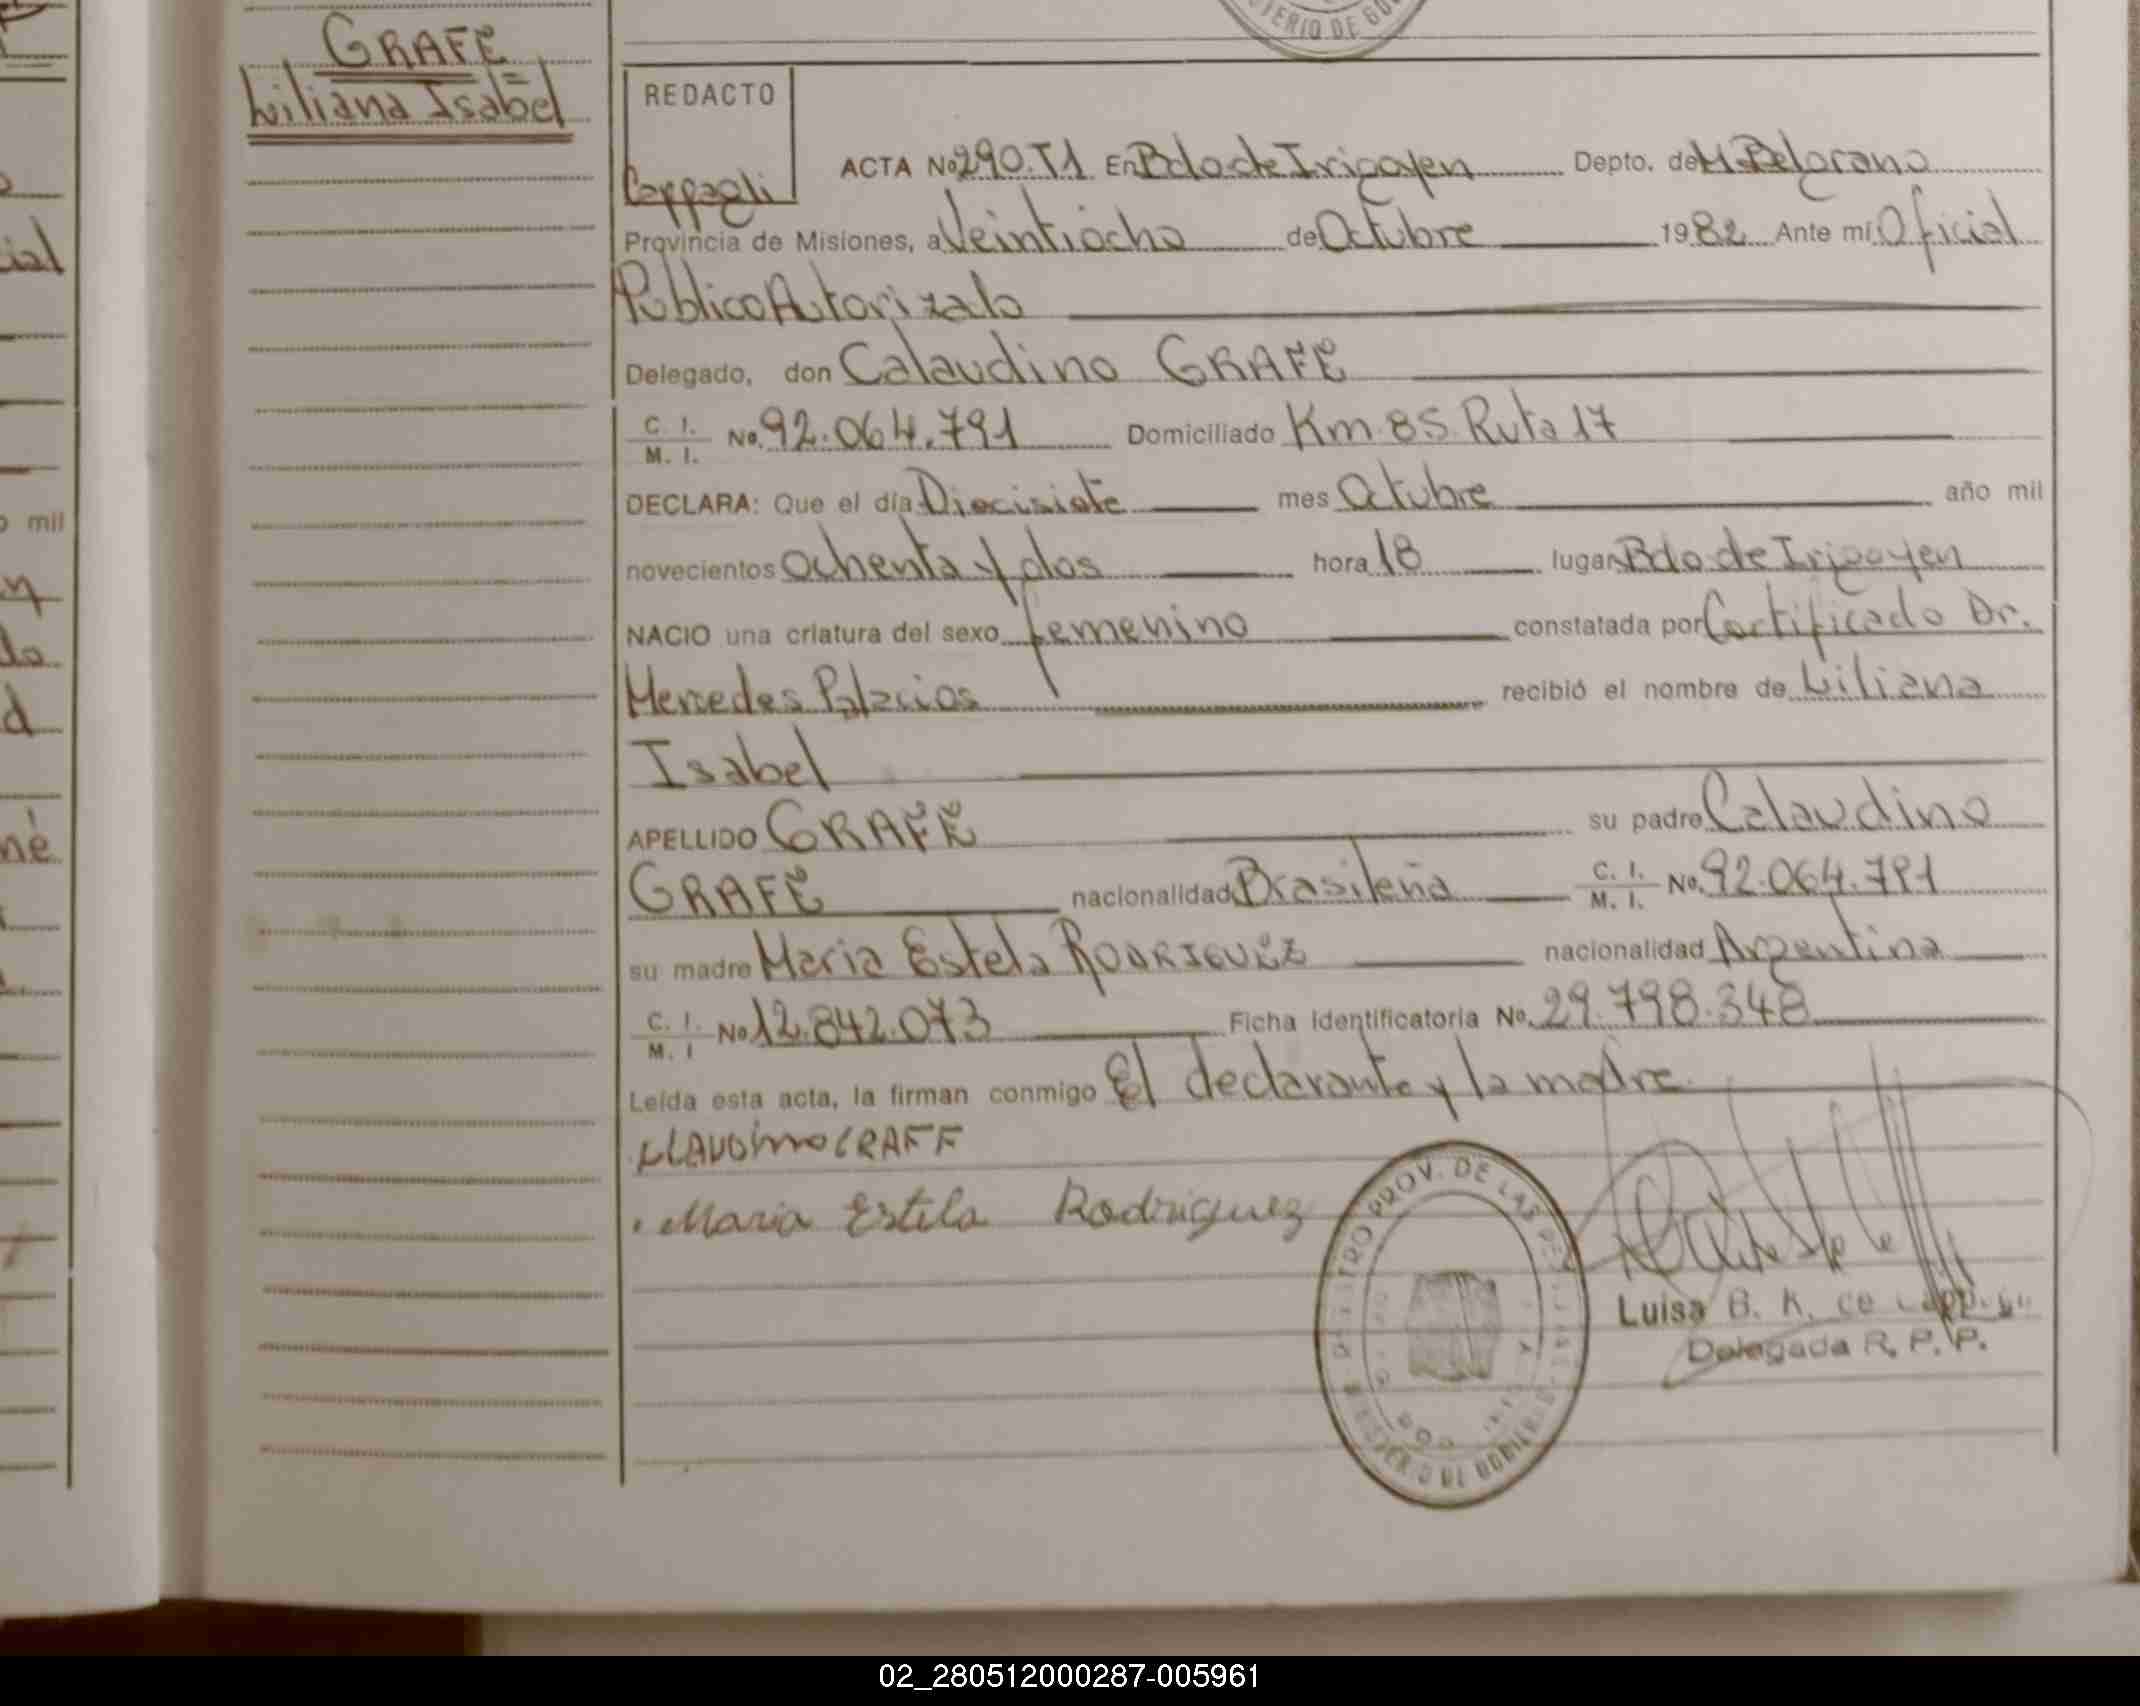 GRAFE
Liliana Isabel
REDACTO
Cappagli
ACTA No 290.T1 En Bdo de Irigoyen Depto. de M Belgrano
Provincia de Misiones, a Veintiocho de Octubre 1982 Ante mí Oficial
Público Autorizalo
Delegado, don Calaudino GRAFE
C. I.
M. I. No. 92.064.791 Domiciliado Km 85 Ruta 17
DECLARA: Que el día Diecisiete mes Octubre año mil
novecientos ochenta y dos hora 18 lugar Bdo de Irigoyen
NACIO una criatura del sexo femenino constatada por Certificado Dr.
Mercedes Palacios recibió el nombre de Liliana
Isabel
APELLIDO GRAFE su padre Calaudino
GRAFE nacionalidad Brasileña C. I.
M. I. No. 92.064.791
su madre Maria Estela RODRIGUEZ nacionalidad Argentina
C. I.
M. I No 12.842.073 Ficha identificatoria No. 29.798.348
Leída esta acta, la firman conmigo El declarante y la madre
CLAUDINO GRAFF
Maria Estela Rodriguez
PROV. DE LAS
Luisa B. K. de
Delegada R. P. P.
02_280512000287-005961